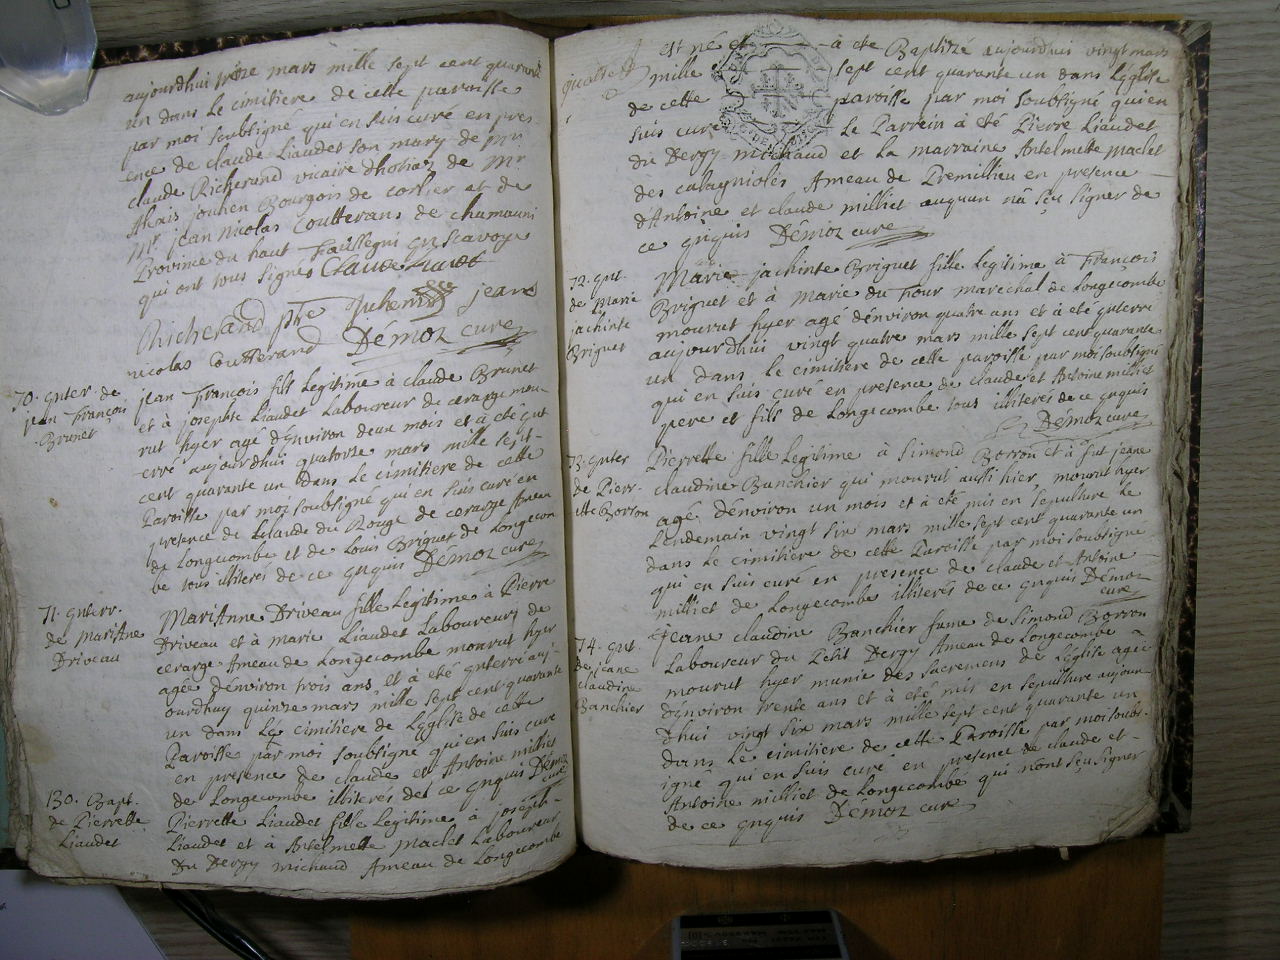 aujourdhui treze mars mille sept cent quarante
un dans le cimitiere de cette paroisse
par moi soubsigné qui en suis curé en pres-
ence de claude Liaudet son mary de Mr
claude Richerand vicaire de Mr
jouhen Bourgois de corlier et de
Mr jean Nicolas Coutterans de chamouni
Province du haut faussegni en Savoye
qui ont tous signés Claude
Richerand ptre Juhen jean
nicolas Coutterand Démoz curé
70. Enter. de
jean François
Brunet
jean François fils Legitime à claude Brunet
et à josephte Liaudet Laboureur de cerarge mou-
rut hyer agé d'environ deux mois et à eté ent
erré aujourdhui quatorze mars mille sept-
cent quarante un dans le cimitiere de cette
Paroisse par moi soubsigné qui en suis curé en
presence de du Rouge de cerarge
de Longecombe et de Louis Briguet de Longecom
be tous illiterés de ce enquis Démoz curé
71. Enterr.
de MariAne
Driveau
MariAnne Driveau fille Legitime à Pierre
Driveau et à marie Liaudet Laboureurs de
cerarge Ameau de Longecombe mourut hyer
agée d'environ trois ans et à eté enterré auj-
ourdhuy quinze mars mille sept cent quarante
un dans Le cimitiere de Leglise de cette
Paroisse par moi soubsigné qui en suis curé
en presence de claude et Antoine milliet
de Longecombe illiterés de ce enquis Démoz
curé
130. Bapt.
de Pierrette
Liaudet
Pierrette Liaudet fille Legitime à joseph-
Liaudet et à Antelmette maclet Laboureur
Du Dergy michaud Ameau de Longecombe
est né et à ete Baptizé aujourdhui vingt mars
mille sept cent quarante un dans Léglise
de cette paroisse par moi soubsigné qui en
suis curé Le Parrein à eté Pierre Liaudet
du Dergy michaud et la marraine Antelmette maclet
des catagnioles Ameau de Premillieu en presence
d'Antoine et claude milliet auquun n'a sçu signer de
ce enquis Démoz curé
72. Ent.
de Marie
jachinte
Briguet
Marie jachinte Briguet fille Legitime à François
Briguet et à marie du four marechal de Longecombe
mourut hyer agé d'environ quatre ans et à eté enterre
aujourdhui vingt quatre mars mille sept cent quarante
un dans le cimitiere de cette paroisse par moi soubsigné
qui en suis curé en presence de claude et Antoine milliet
pere et fils de Longecombe tous illiterés de ce enquis
Démoz curé
73. Enter
de Pierr-
ette Borron
Pierrette fille Legitime à Simond Borron et à fut jeane
claudine Banchier qui mourut aussi hier, mourut hyer
agé d'environ un mois et à eté mis en sepulture Le
Lendemain vingt six mars mille sept cent quarante un
dans le cimitiere de cette Paroisse par moi soubsigné
qui en suis curé en presence de claude et Antoine
milliet de Longecombe illiterés de ce enquis Démoz
curé
74. Ent.
de jeane
claudine
Banchier
jeane claudine Banchier fame de Simond Borron
Laboureur du Petit Dergy Ameau de Longecombe
mourut hyer munie des sacremens de L'église agée
d'environ trente ans et à eté mis en sepulture aujour-
dhui vingt six mars mille sept cent quarante un
dans le cimitiere de cette Paroisse par moi soubs-
igné qui en suis curé en presence de claude et
Antoine milliet de Longecombe qui n'ont sçu signer
de ce enquis Démoz curé